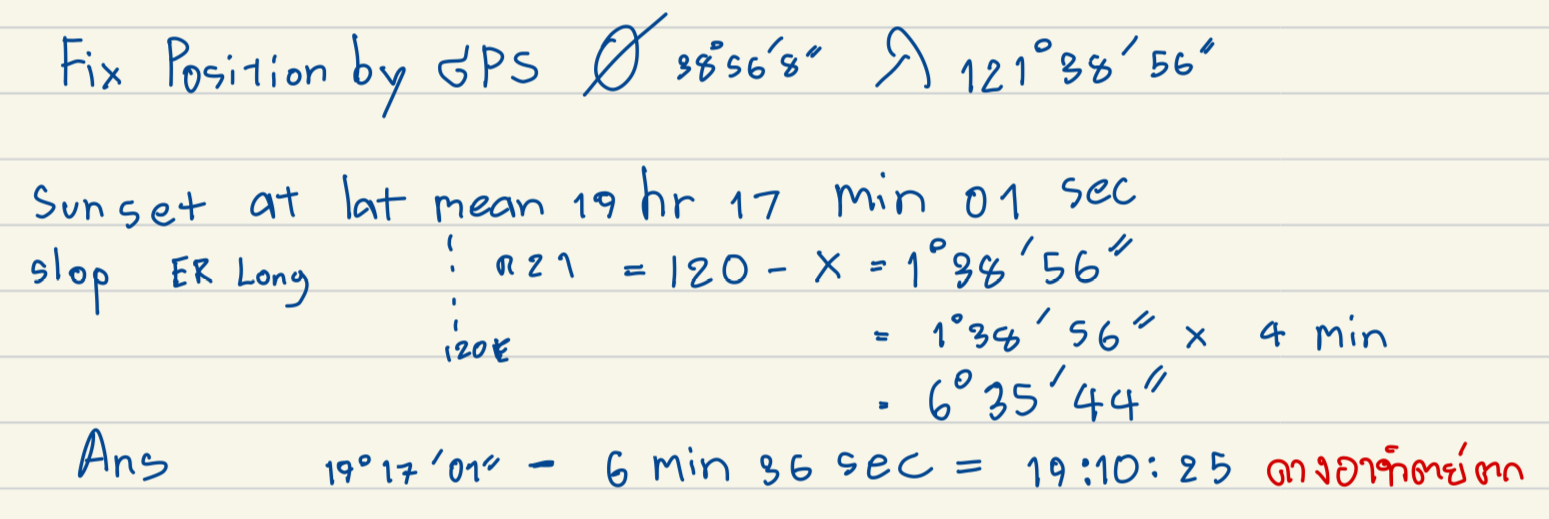 Fix Position by GPS Ø 38°56'8" λ 121°38'56"
Sunset at lat mean 19 hr 17 min 01 sec
slop ER Long 121 = 120 - X = 1°38'56"
120E = 1°38'56" x 4 min
= 6°35'44"
Ans 19°17'01" - 6 min 36 sec = 19:10:25 ดวงอาทิตย์ตก